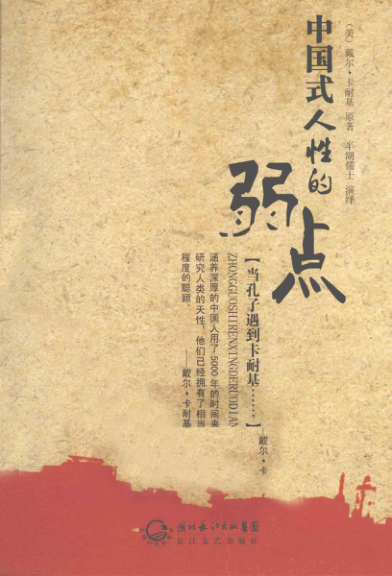 （美）戴尔·卡耐基 原著 平湖儒士 演绎
中国式人性的
弱点
【当孔子遇到卡耐基……】
ZHONGGUOSHIRENXINGDERUODIAN
——戴尔·卡
涵养深厚的中国人用了5000年的时间来
研究人类的天性，他们已经拥有了相当
程度的聪颖。
——戴尔·卡耐基
湖北长江出版集团
长江文艺出版社